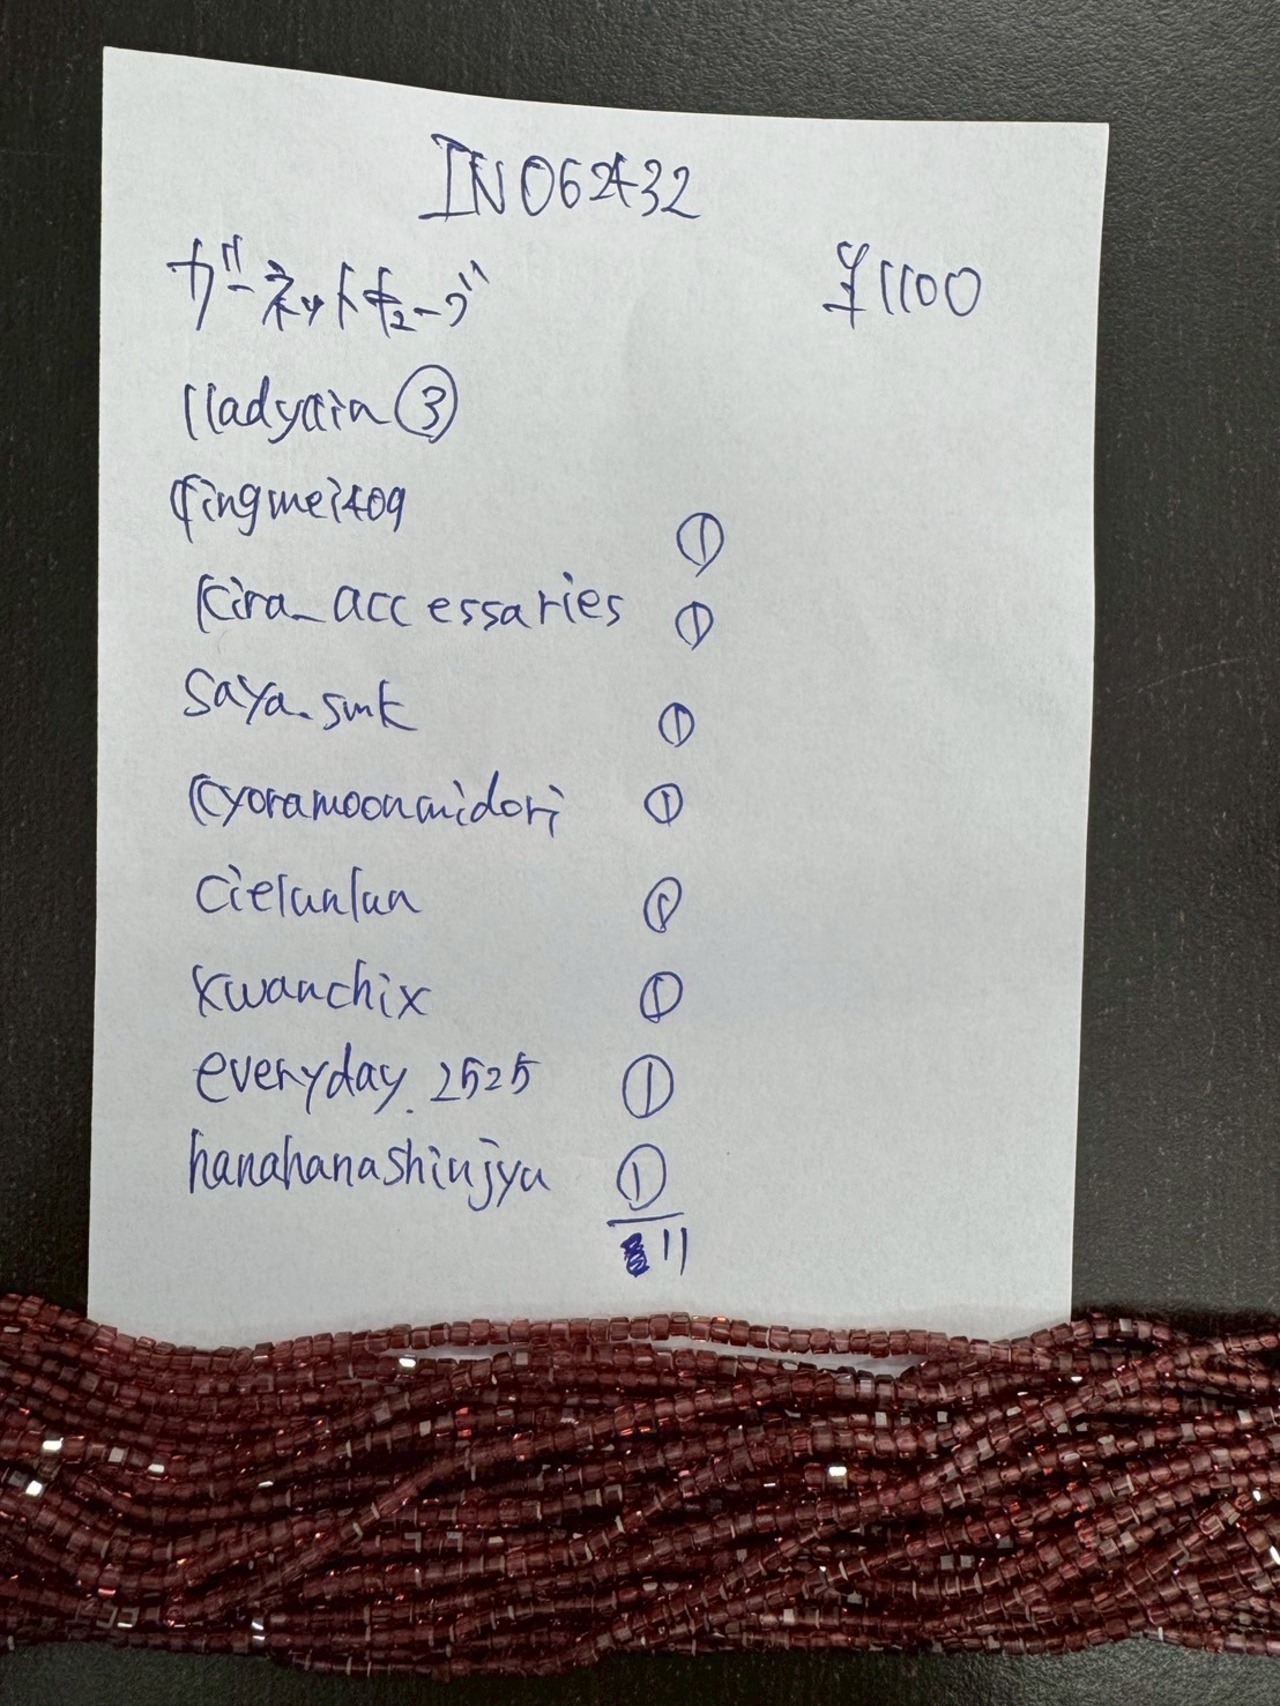 IN062432
ガーネットキューブ ¥1100
lladyain ③
qingmei409 ①
kira_accessaries ①
saya.smk ①
kyoramoonmidori ①
cielunlun ①
kwanchix ①
everyday.2525 ①
hanahanashinjyu ①
11